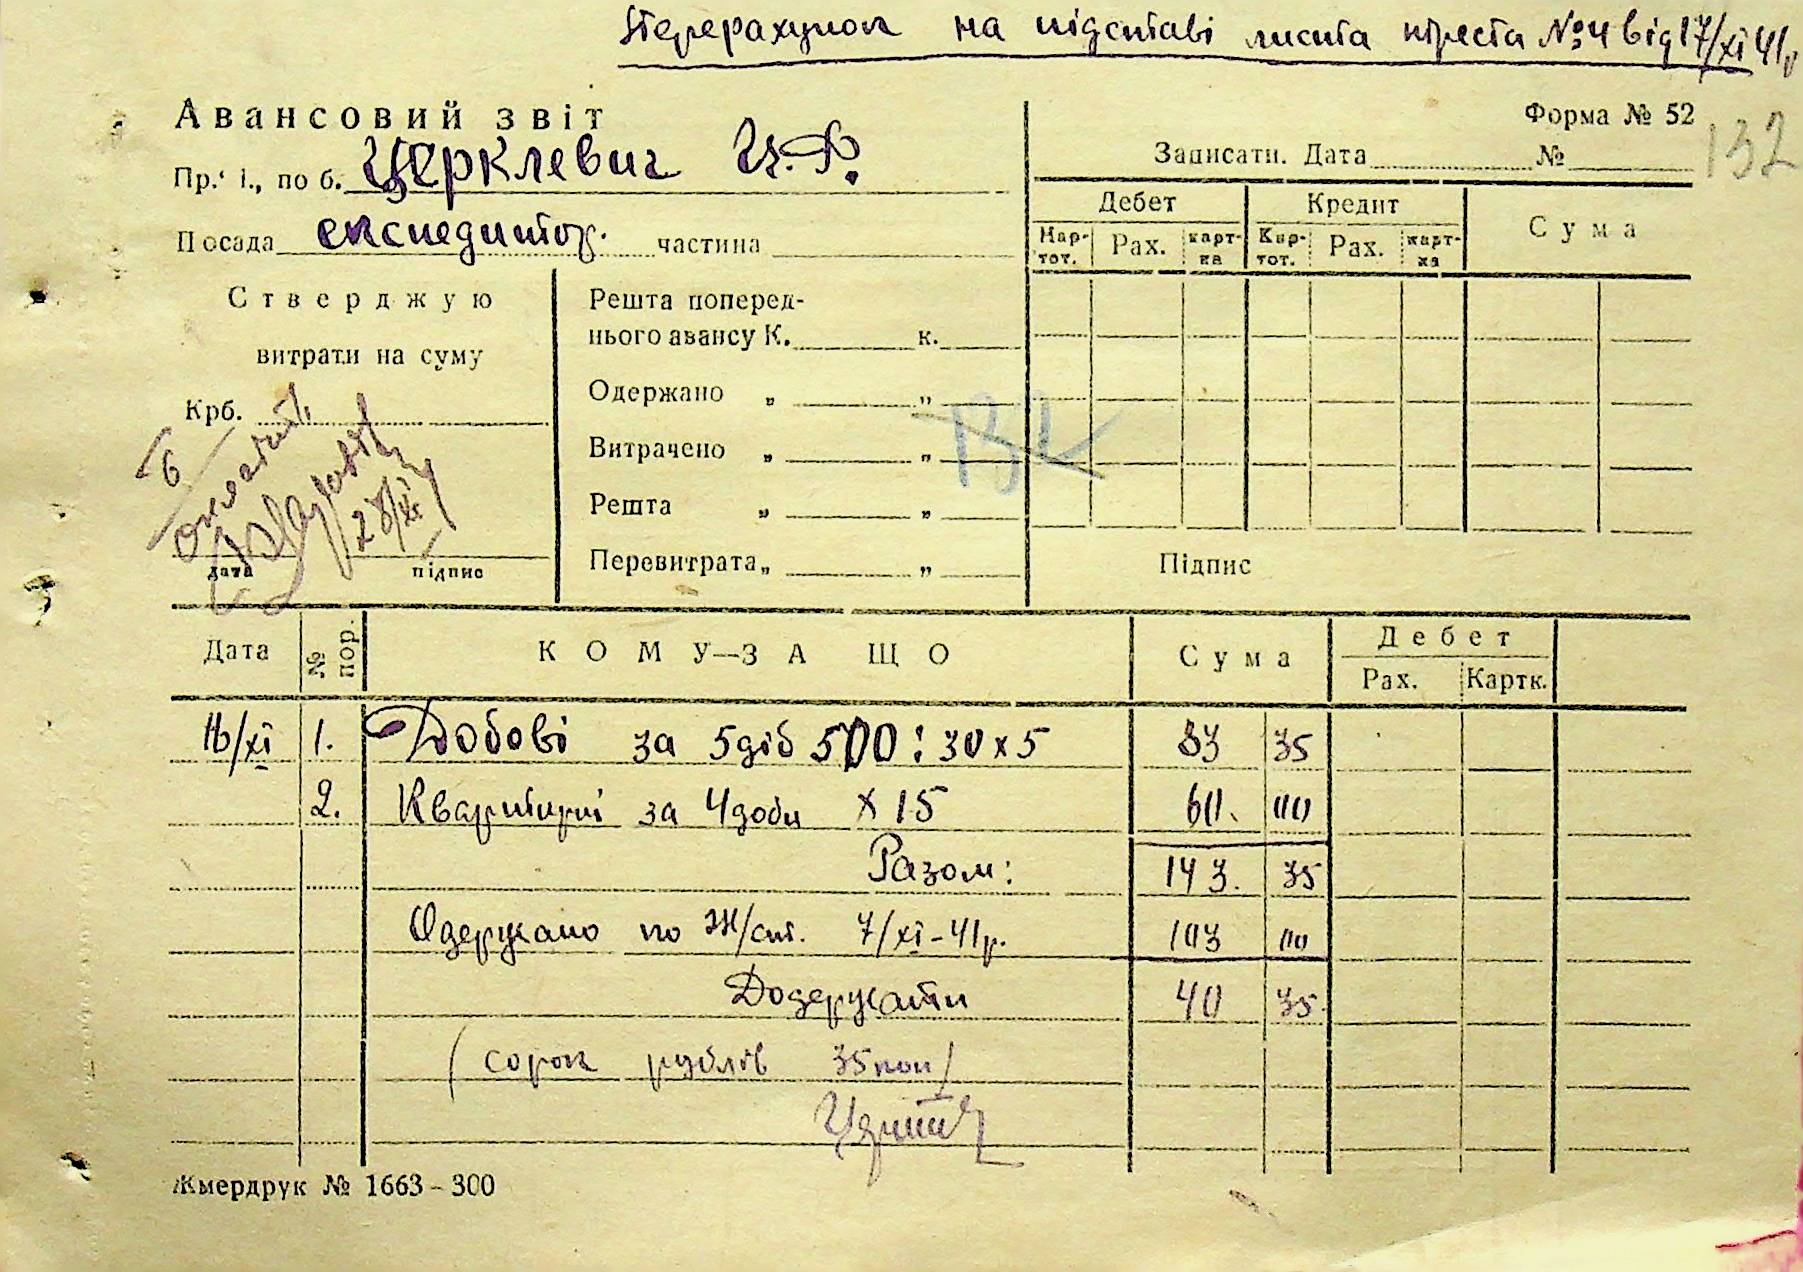 Перерахунок на підставі листа треста №4 від 17/XI 41р
Авансовий звіт
Форма № 52
132
Пр. і., по б. Церклевич И.Ф.
Записати. Дата №
Посада експедитор. частина
Дебет Кредит Сума
Кар-тот. Рах. карт-ка Кар-тот. Рах. карт-ка
Стверджую
витрати на суму
Крб.
Б
оплатити
28/XI
дата підпис
Решта поперед-
нього авансу К. к.
Одержано „ „
Витрачено „ „
Решта „ „
Перевитрата „ „
Підпис
Дата № пор. КОМУ—ЗА ЩО Сума Дебет
Рах. Картк.
16/XI 1. Добові за 5 діб 500 : 30 х 5 83 35
2. Квартирні за 4 доби х 15 60. 00
Разом: 143. 35
Одержано по Ж/опт. 7/XI-41р. 103 00
Додержати 40 35
(сорок рублів 35 коп)
Жмердрук № 1663 - 300